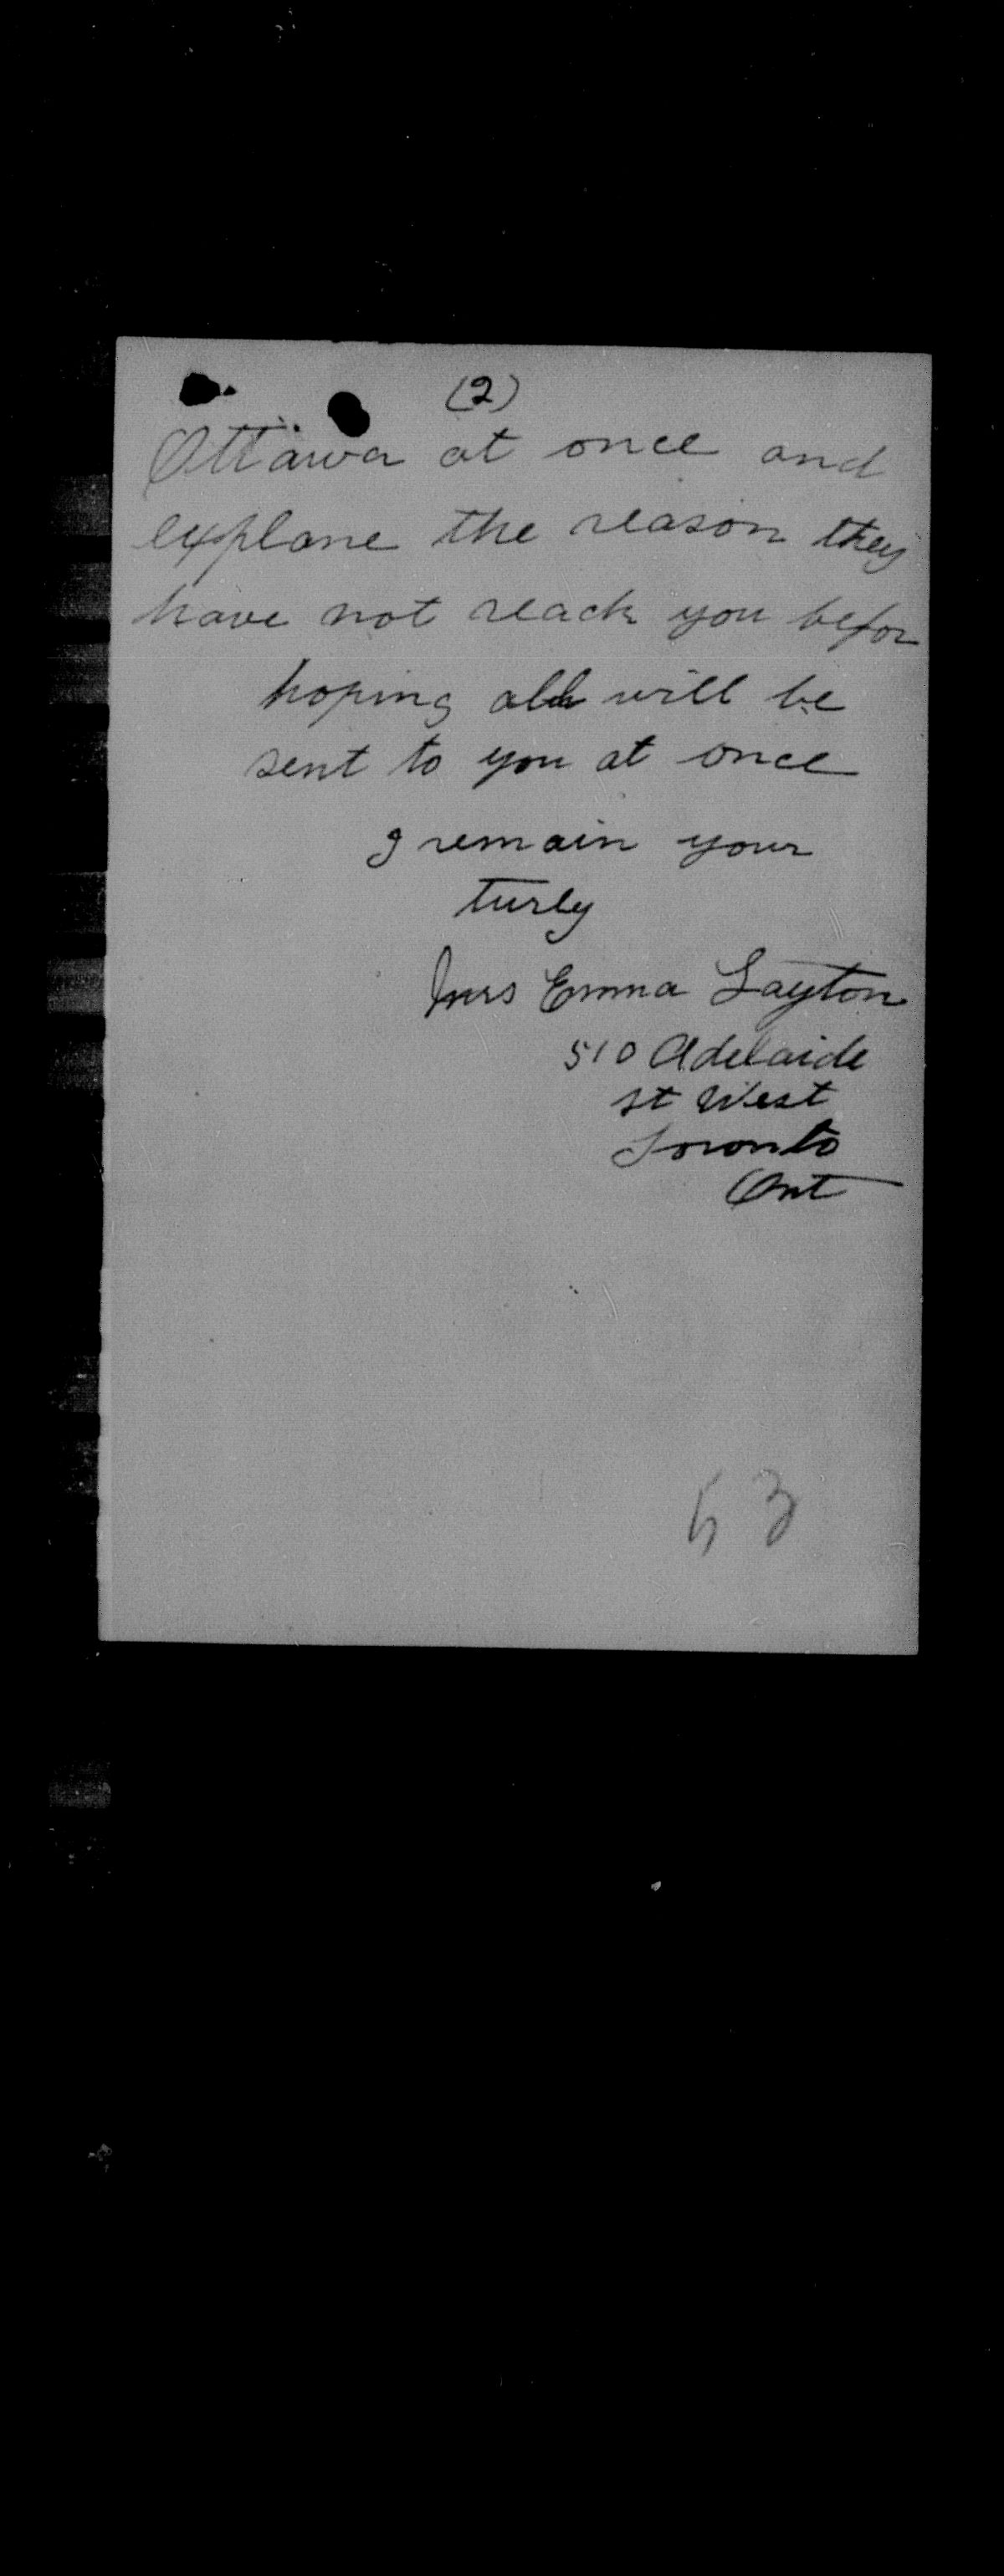 (2)
Ottawa at once and
explane the reason they
have not reach you befor
hoping all will be
sent to you at once
I remain your
turly
Mrs Emma Layton
510 Adelaide
st West
Toronto
Ont
53